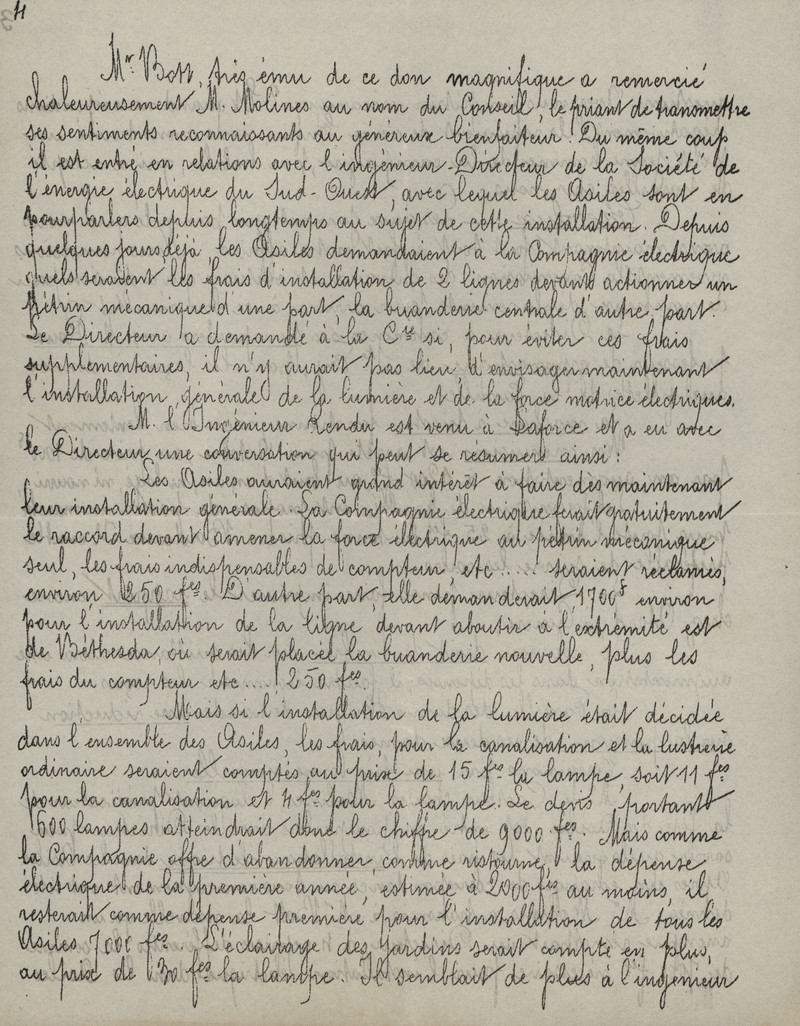 4
Mr. Bott, très ému de ce don magnifique a remercié
chaleureusement M. Molines au nom du Conseil, le priant de transmettre
ses sentiments reconnaissants au généreux bienfaiteur. Du même coup
il est entré en relations avec l'ingénieur-Directeur de la Société de
l'énergie électrique du Sud-Ouest, avec lequel les Asiles sont en
pourparlers depuis longtemps au sujet de cette installation. Depuis
quelques jours déjà, les Asiles demandaient à la Compagnie électrique
quels seraient les frais d'installation de 2 lignes devant actionner un
Pétrin mécanique d'une part, la buanderie centrale d'autre part.
Le Directeur a demandé à la Cie si, pour éviter ces frais
supplémentaires, il n'y aurait pas lieu d'envisager maintenant
l'installation générale de la lumière et de la force motrice électriques.
M. l'Ingénieur est venu à Laforce et a eu avec
le Directeur une conversation qui peut se résumer ainsi :
Les Asiles auraient grand intérêt à faire dès maintenant
leur installation générale. La Compagnie électrique ferait gratuitement
le raccord devant amener la force électrique au pétrin mécanique
seul, les frais indispensables de compteur, etc..... seraient réclamés,
environ 250 fcs. D'autre part, elle demanderait 1700f environ
pour l'installation de la ligne devant aboutir à l'extrémité est
de Béthesda, où serait placée la buanderie nouvelle, plus les
frais du compteur etc.... 250 fcs.
Mais si l'installation de la lumière était décidée
dans l'ensemble des Asiles, les frais, pour la canalisation et la lustrerie
ordinaire seraient comptés au prix de 15 fcs la lampe, soit 11 fcs
pour la canalisation et 4 fcs pour la lampe. Le devis portant
600 lampes atteindrait donc le chiffre de 9000 fcs. Mais comme
la Compagnie offre d'abandonner, comme ristourne, la dépense
électrique de la première année, estimée à 2000 fcs au moins, il
resterait comme dépense première pour l'installation de tous les
Asiles 7000 fcs. L'éclairage des jardins serait compté en plus,
au prix de 30 fcs la lampe. Il semblait de plus à l'ingénieur